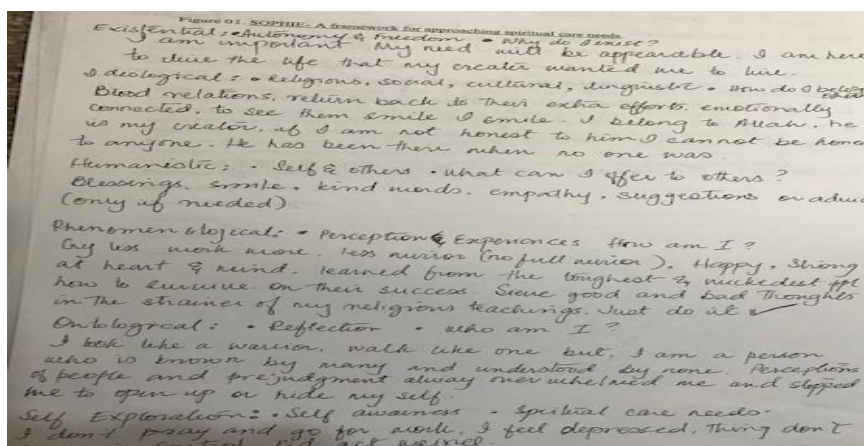 Figure 01. SOPHIE- A framework for approaching spiritual care needs
Existential: • Autonomy & Freedom • Why do I exist?
I am important My need will be appearable. I am here
to live the life that my creater wanted me to live.
Ideological: • Religious, social, cultural, linguistic • How do I belong
Blood relations, return back to their extra efforts, emotionally
connected, to see them smile I smile. I belong to Allah, he
is my creator, if I am not honest to him I cannot be hones
to anyone. He has been there when no one was.
Humanistic: • Self & others • what can I offer to others?
Blessings, smile, kind words, empathy, suggestions or advic
(only if needed).
Phenomenological: • Perception & Experiences How am I?
Cry less work more. less mirror (no full mirror), Happy, strong
at heart & mind. learned from the toughest & ppl
how to survive on their success. Sieve good and bad thoughts
in the strainer of my religious teachings. Just do it ✓
Ontological: • Reflection • who am I?
I look like a warrior, walk like one but, I am a person
who is known by many and understood by none. Perceptions
of people and prejudgment alway overwhelmed me and stopped
me to open up or hide my self.
Self Exploration: • Self awareness • Spiritual care needs.
I don't pray and go for work, I feel depressed, Thing don't